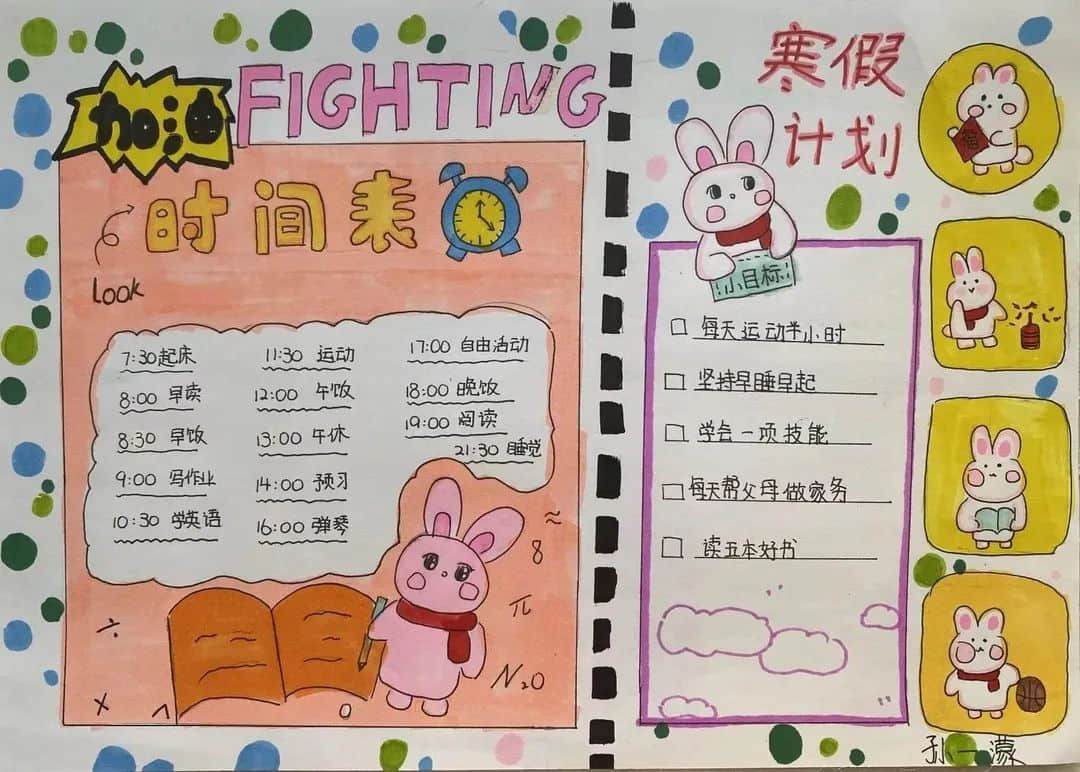 加油 FIGHTING
时间表
Look
7:30起床
8:00 早读
8:30 早饭
9:00 写作业
10:30 学英语
11:30 运动
12:00 午饭
13:00 午休
14:00 预习
16:00 弹琴
17:00 自由活动
18:00 晚饭
19:00 阅读
21:30 睡觉
≈
8
π
N₂O
÷
×
寒假
计划
小目标
每天运动半小时
坚持早睡早起
学会一项技能
每天帮父母做家务
读五本好书
福
孙一濛